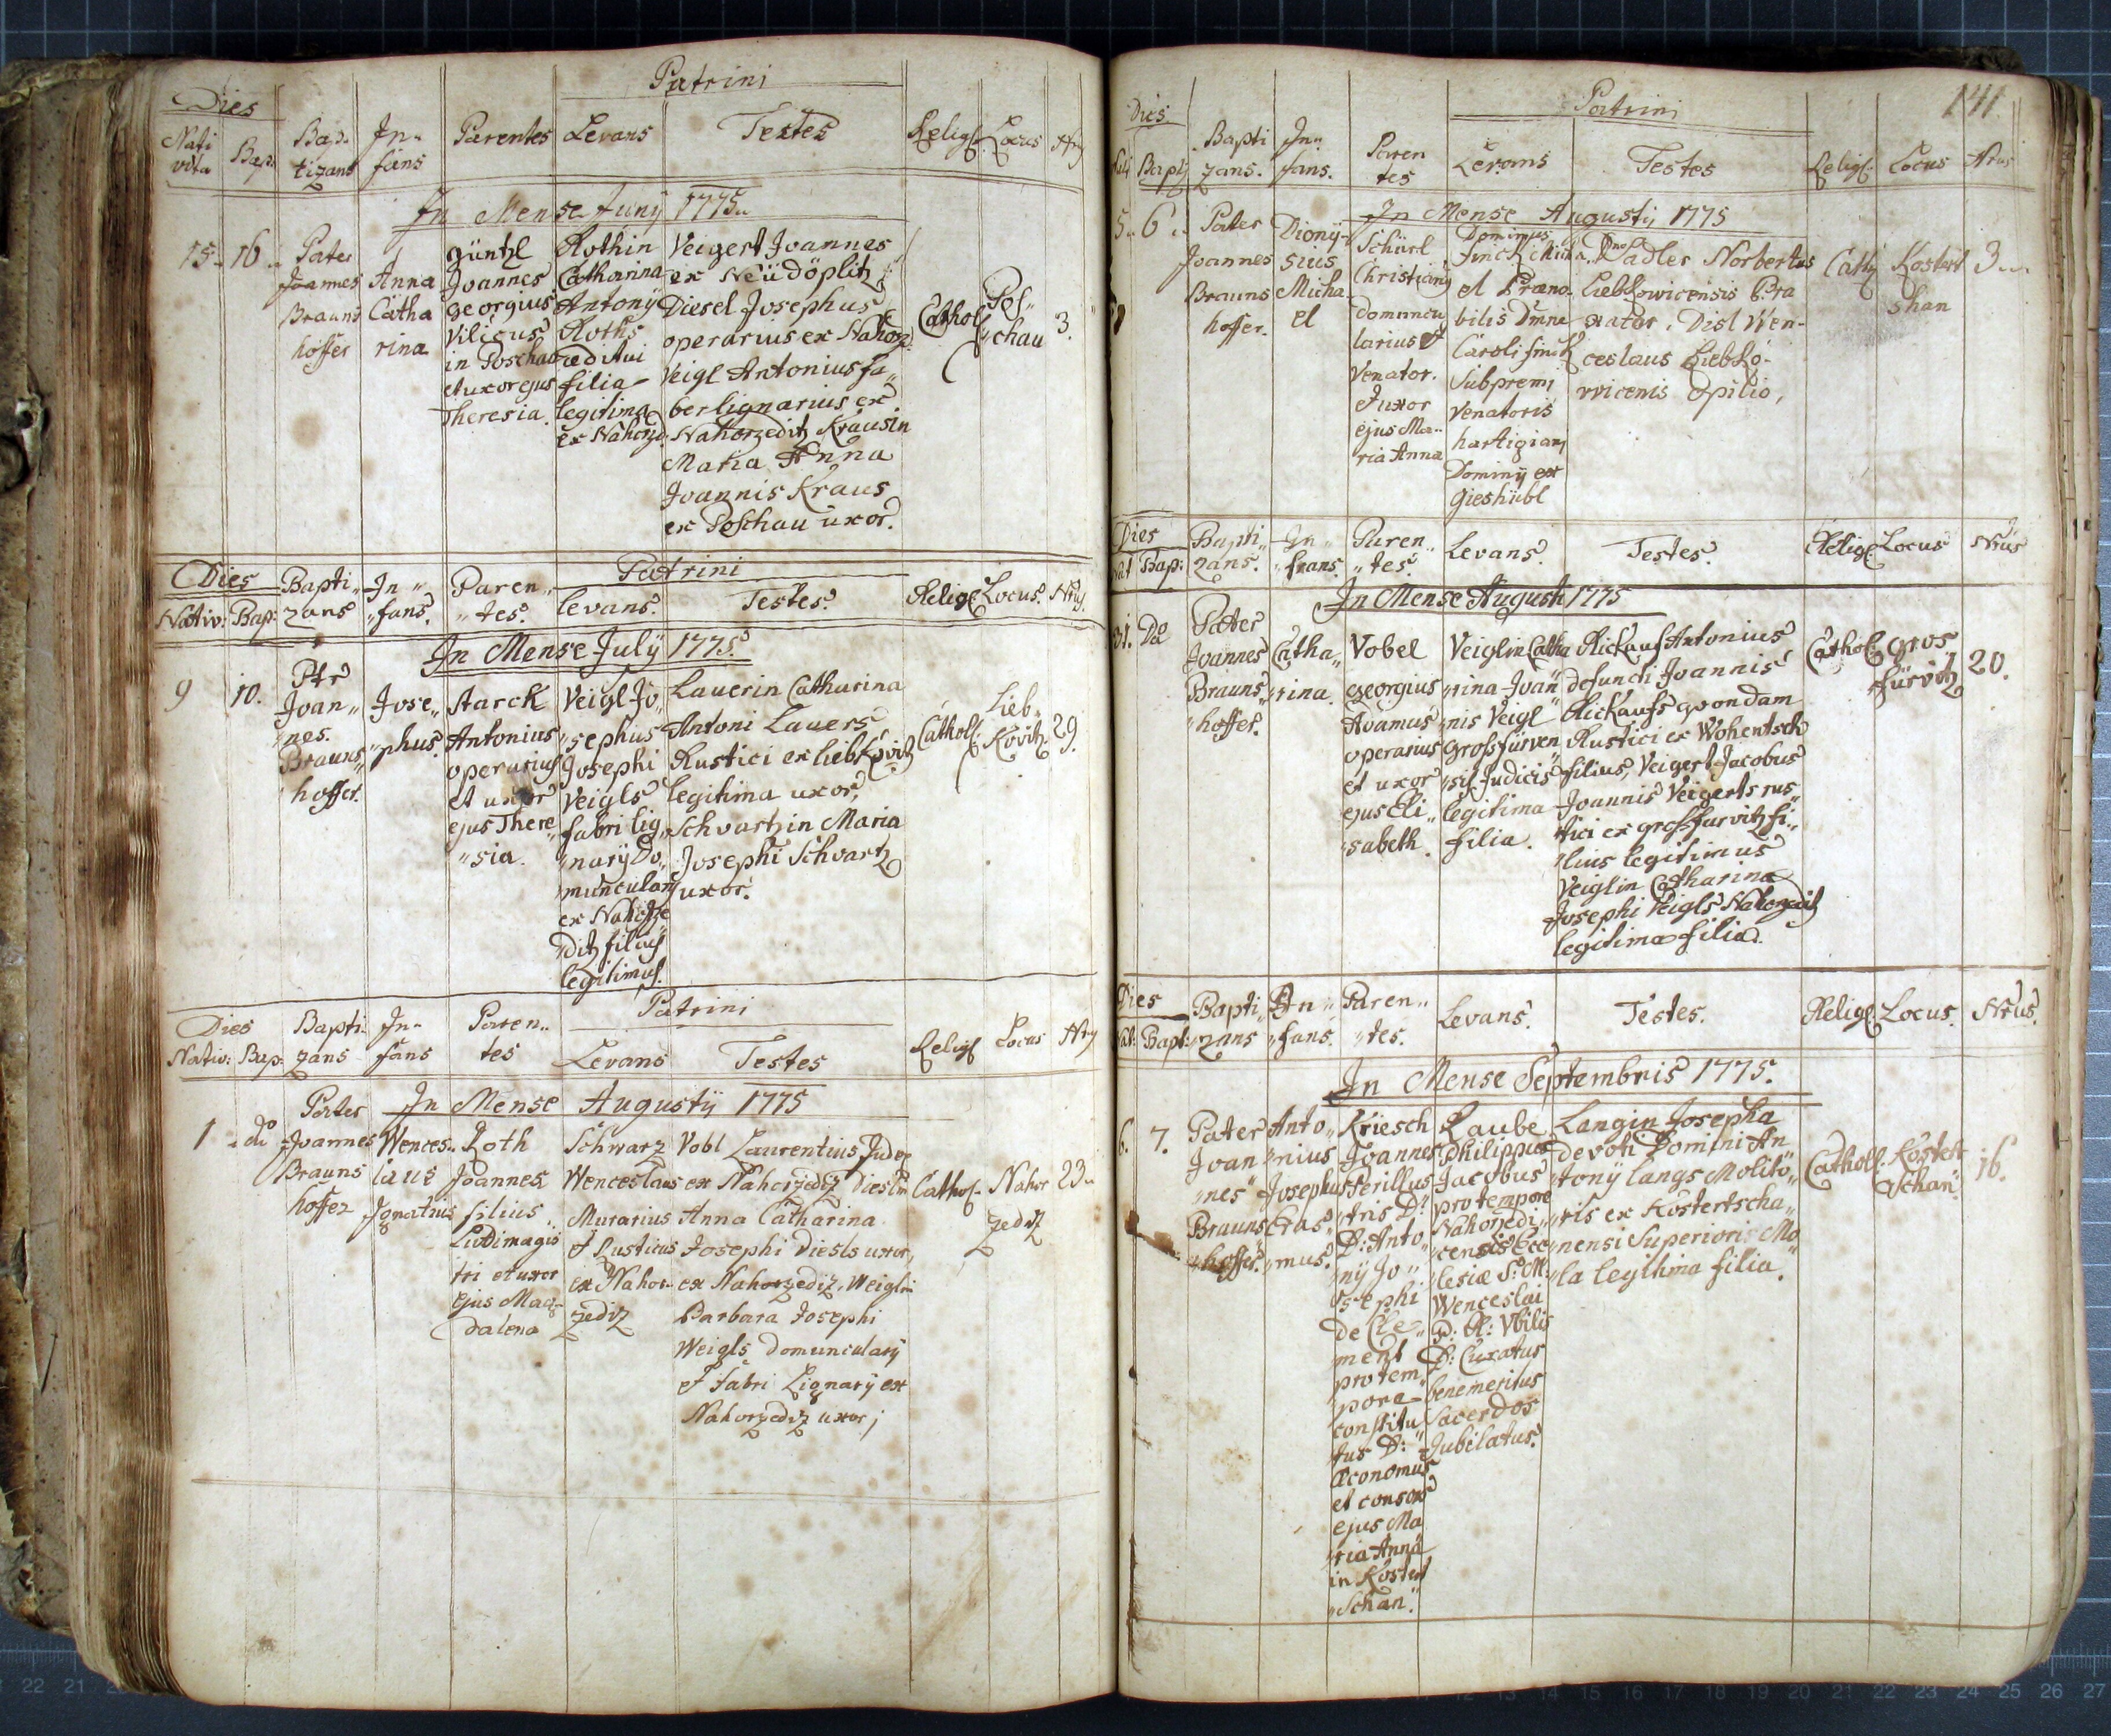 Patrini
Dies
Nati
vita
Bap:
Bap-
tizans
In-
fans
Parentes
Levans
Testes
Religi
Locus
Nrus
In Mense Juny 1775
15.
16
Pater
Joannes
Brauns
hoffer
Anna
Catha
rina
Güntzl
Joannes
Georgius
Vilicus
in Poschau
et uxor ejus
Theresia
Rothin
Catharina
Antony
Roths
æditui
filia
legitima
ex Nahorzed
Veigert Joannes
ex Neüdöplitz
Diesel Josephus
operarius ex Nahorz
Veigl Antonius fa„
ber lignarius ex
Nahorzeditz Krausin
Maria Anna
Joannis Kraus
ex Poschau uxor.
Cathol
Pos„
„chau
3.
Dies
Nativ: Bap:
Bapti„
zans
In„
„fans.
Paren„
„tes.
Patrini
Levans.
Testes.
Religi
Locus.
Nrus.
In Mense July 1775.
9
10.
Ptr
Joan„
„nes.
Brauns„
„hoffer.
Jose„
„phus.
Starck
Antonius
operarius
et uxor
ejus There„
„sia.
Veigl Jo„
„sephus
Josephi
Veigls
fabri lig„
„nary Do„
„muncularÿ
ex Nahorze
„ditz filius
legitimus.
Lauerin Catharina
Antoni Lauers
Rustici ex liebkovitz
legitima uxor,
Schvartzin Maria
Josephi Schvartz
uxor.
Cathol:
Lieb„
Kovitz
29.
Dies
Nativ: Bap:
Bapti-
zans
In-
fans
Paren„
tes
Patrini
Levans
Testes
Religi
Locus
Nrus
In Mense Augustÿ 1775
1
do
Pater
Joannes
Brauns
hoffer
Wences„
laus
Ignatius
Roth
Joannes
filius
Ludimagis
tri et uxor
ejus Mag-
dalena
Schwarz
Wenceslaus
Murarius
et Rusticus
ex Nahor-
zediz
Vobl Laurentius Judex
ex Nahorzediz Dieslin
Anna Catharina
Josephi Diesls uxor,
ex Nahorzediz, Weiglin
Barbara Josephi
Weigls domuncularÿ
et fabri Lignarÿ ex
Nahorzediz uxor;
Cathol-
Nahor
zediz
23
141.
Dies
Bapt
Bapti
zans.
In„
fans.
Paren
tes
Patrini
Levans
Testes
Religi:
Locus
Nrus
In Mense Augusti 1775
5.
6.
Pater
Joannes
Brauns
hoffer.
Dionÿ-
sius
Micha
el
Schürl
Christiany
domuncu
larius et
Venator.
et uxor
ejus Ma-
ria Anna
Dominus
et Præno-
bilis Dmne
Caroli finck
Subpremi
Venatoris
hartigian
Dominÿ ex
Gieshübl
Dno Sadler Norbertus
Liebkowicensis Bra
xator, Disl Wen-
ceslaus Liebko-
wicenis Opilio,
Cathl
Kostert
shan
3
Dies
Nat Bap:
Bapti„
zans.
In„
„fans.
Paren„
„tes.
Levans.
Testes.
Religi:
Locus
Nrus
In Mense Augusti 1775
31.
Do
Pater
Joannes
Brauns„
„hoffer.
Catha„
„rina.
Vobel
Georgius
Adamus
operarius
et uxor
ejus Eli„
„sabeth.
Veiglin Catha
„rina Joan„
„nis Veigl
Grossfürven
„sis Judicis
legitima
filia.
Rickauf Antonius
defuncti Joannis
Rickaufs quondam
Rustici ex Wohentsch
filius, Veigert Jacobus
Joannis Veigerts rus„
„tici ex grossfurvitz fi„
„lius legitimus
Veiglin Catharina
Josephi Veigls Nahorzedit
legitima filia.
Cathol:
Gros
fürvitz
20.
Dies
Nat: Bapt:
Bapti„
„zans
In„
„fans.
Paren„
„tes.
Levans.
Testes.
Religi:
Locus.
Nrus.
In Mense Septembris 1775.
6.
7.
Pater
Joan
„nes
Brauns
„hoffer.
Anto„
„nius
Josephus
Eras„
„mus.
Kriesch
Joannes
Perillus„
„tris D:
D: Anto
„nÿ Jo„
„sephi
de Cle„
ment
pro tem„
„pore
constitu
tus D:
Œconomus
et consors
ejus Ma
„ria Anna
in Kostert
„Schan.
Raube
Philippus
Jacobus
pro tempore
Nahorzedi„
„censis Ecc
„lesiæ S: M
Wenceslai
P: A: Vbilis
D: Curatus
benemeritus
Sacerdos
Jubilatus.
Langin Josepha
devoti Domini An
„tonÿ langs Molito„
„ris ex Kostertscha„
„nensi Superiori Mo
„la legitima filia.
Cathol:
Kostert
Schan
16.